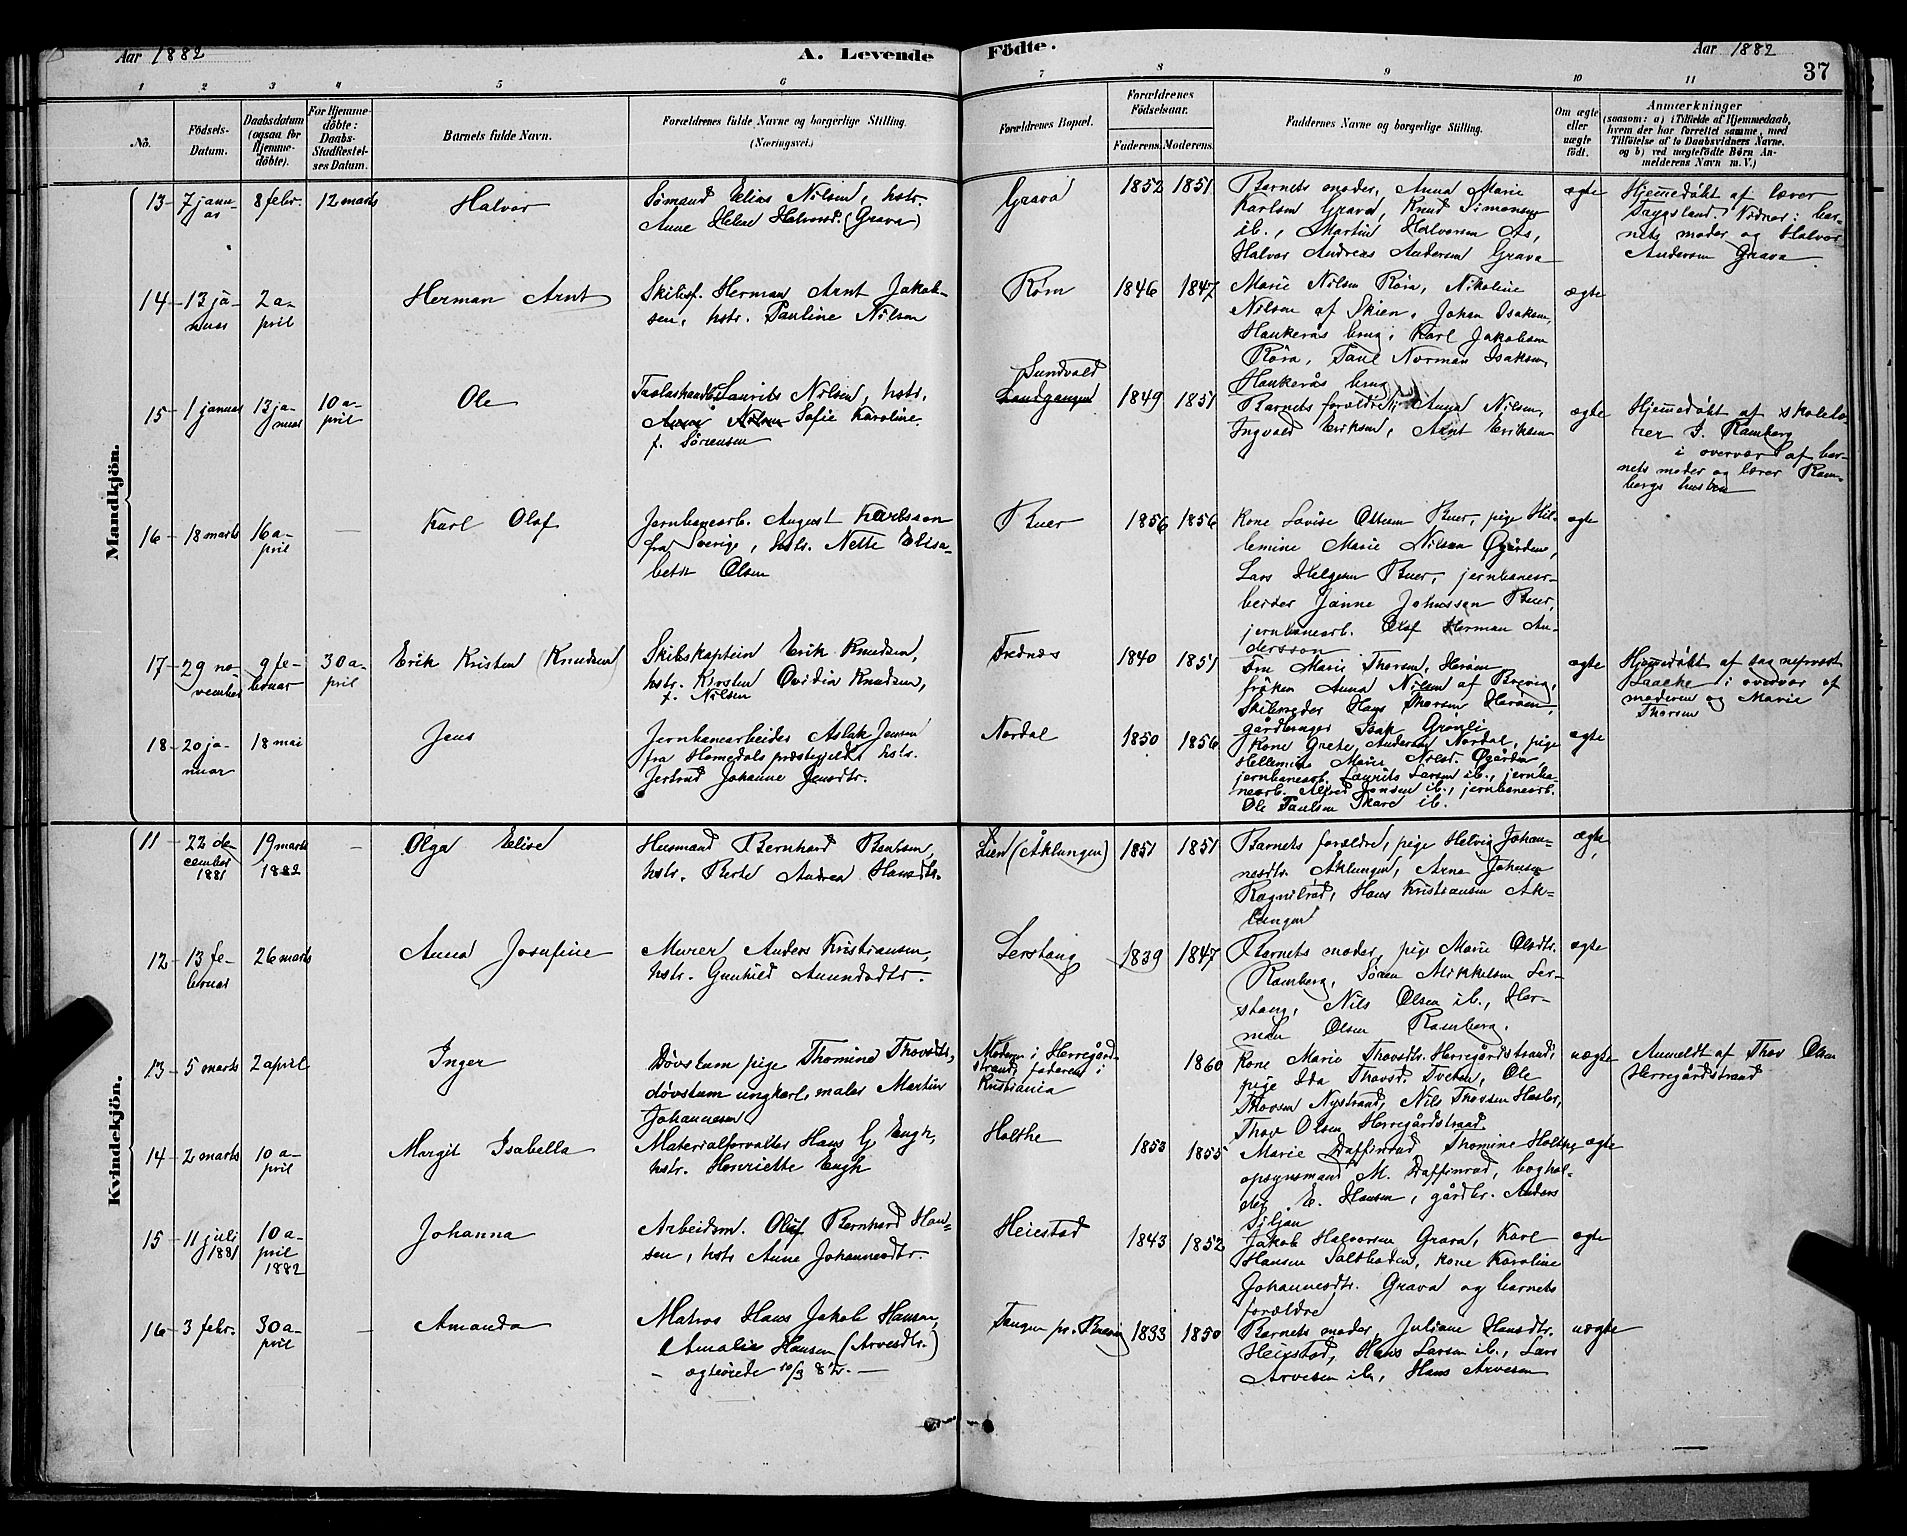 Aar 1882
A. Levende Födte.
Aar 1882
37
1 2 3 4 5 6 7 8 9 10 11
No.
Födsels-Datum.
Daabsdatum (ogsaa for Hjemme-döbte).
For Hjemme-döbte: Daabs-Stadfestel-ses Datum.
Barnets fulde Navn.
Forældrenes fulde Navne og borgerlige Stilling. (Næringsvei.)
Forældrenes Bopæl.
Forældrenes Födselsaar.
Faderens. Moderens.
Faddernes Navne og borgerlige Stilling.
Om ægte eller uægte födt.
Anmærkninger (saasom: a) i Tilfælde af Hjemmedaab, hvem der har forrettet samme, med Tilföielse af to Daabsvidners Navne. og b) ved uægtefödte Börn Anmelderens Navn m. V.)
Mandkjön.
13 7 janu-ar 8 febr. 12 marts
Halvor
Sømand Elias Nilsen, hstr.
Anne Helene Halvorsd. (Grava)
Grava
1852 1851
Barnets moder, Anna Marie
Karlsen Grava, Knud Simonsen
ib., Martin Halvorsen Ås,
Halvor Andreas Andersen Grava
ægte
Hjemmedøbt af lærer
Trygsland. Vidner: bar-
nets moder og Halvor
Andersen Grava
14 13 ja-nuar 2 a-pril
Herman Arnt
Skibsf. Herman Arnt Jakob-
sen, hstr. Pauline Nilsen
Røra
1846 1847
Marie Nilsen Røra, Nikoline
Nilsen af Skien, Johan Isaksen,
Haukerås brug, Karl Jakobsen
Røra, Paul Norman Isaksen,
Haukerås brug
ægte
15 1 januar 13 ja-nuar 10 a-pril
Ole
Laurits Nilsen, hstr.
Sofie Karoline
f. Sörensen
Sundvald
1849 1851
Barnets forældre, Anna Nilsen,
Ingvald Eriksen, Arnt Eriksen
ægte
Hjemmedøbt af skolelæ-
rer J. Ramberg
i overvær af bar-
nets moder og lærer Ram-
bergs hustru
16 18 marts 16 a-pril —
Karl Olaf
Jernbanearb. August Karlsson
fra Sverige, hstr. Nette Elisa-
beth Olsen
Buer
1856 1856
Kone Lovise Olsen Buer, pige Hil-
lemine Marie Nilsen Øgården,
Lars Helgesen Buer, jernbanear-
beider Janne Johnssen Buer,
jernbanearb. Olof Herman An-
dersson
ægte
17 29 no-vember 9 fe-bruar 30 a-pril
Erik Kristen (Knudsen)
Skibskaptein Erik Knudsen,
hstr. Kirsten Ovidia Knudsen,
f. Nilsen
Frednæs
1840 1851
Fru Marie Thorsen, Herøen
frøken Anna Nilsen af Brevig,
Skibsreder Hans Thorsen Herøen,
gårdbruger Isak Grønli
ægte
Hjemmedøbt af sogneprest
Laache i overvær af
moderen og Marie
Thorsen
18 20 ja-nuar 18 mai
Jens
Jernbanearbeider Aslak Jensen
fra Homedals præstegjeld, hstr.
Jertrud Johanne Jensdtr.
Nordal
1850 1856
Kone Grete Andersen Nordal, pige
Hellemine Marie Nilsd. Øgården,
jernbanearb. Laurits Larsen ib., jernba-
nearb. Alfred Jonsen ib., jernbanearb.
Ole Paulsen Skare ib.
ægte
Kvindekjön.
11 22 de-cember 1881 19 marts 1882 —
Olga Elise
Husmand Bernhard Bentsen,
hstr. Berte Andrea Hansdtr.
Lien (Åklungen)
1851 1851
Barnets forældre, pige Helvig Johan-
nesdtr. Åklungen, Arne Johnsen
Ragnilrød, Hans Kristiansen Åk-
lungen
ægte
12 13 fe-bruar 26 marts
Anna Josefine
Murer Anders Kristiansen,
hstr. Gunhild Amundsdtr.
Lerstang
1839 1847
Barnets moder, pige Marie Olsdtr.
Ramberg, Søren Mikkelsen Ler-
stang, Nils Olsen ib., Her-
man Olsen Ramberg.
ægte
13 5 marts 2 april
Inger
Døvstum pige Thomine Thovsdtr.,
døvstum ungkarl, maler Martin
Johannesen
Moderen i Herregård-
strand, faderen i
Kristiania
1860
Kone Marie Thovsdtr. Herregårdstrand,
pige Ida Thovsd. Tveten, Ole
Thovsen Nystrand, Nils Thovsen Hæsler,
Thov Olsen Herregårdstrand
uægte
Anmeldt af Thov Olsen
Herregårdstrand
14 2 marts 10 a-pril
Margit Isabella
Materialforvalter Hans G. Engh,
hstr. Henriette Engh
Holthe
1853 1855
Marie Daffinrud, Thomine Holthe,
opsynsmand M. Daffinrud, boghol-
der E. Hansen, gårdbr. Anders
Siljan
ægte
15 11 juli 1881 10 a-pril 1882
Johanna
Arbeidsm. Oluf Bernhard Han-
sen, hstr Anne Johannesdtr.
Heiestad
1843 1852
Jakob Halvorsen Grava, Karl
Hansen Saltboden, kone Karoline
Johannesdtr. Grava og barnets
forældre
ægte
16 3 febr. 30 a-pril —
Amanda
Matros Hans Jakob Hansen,
Amalie Hansen (Arvesdtr.)
— ægteviede 10/3 82. —
Tangen pr. Brevig
1833 1850
Barnets moder, Juliane Hansdtr.
Heiestad, Hans Larsen ib., Lars
Arvesen ib., Hans Arvesen
uægte